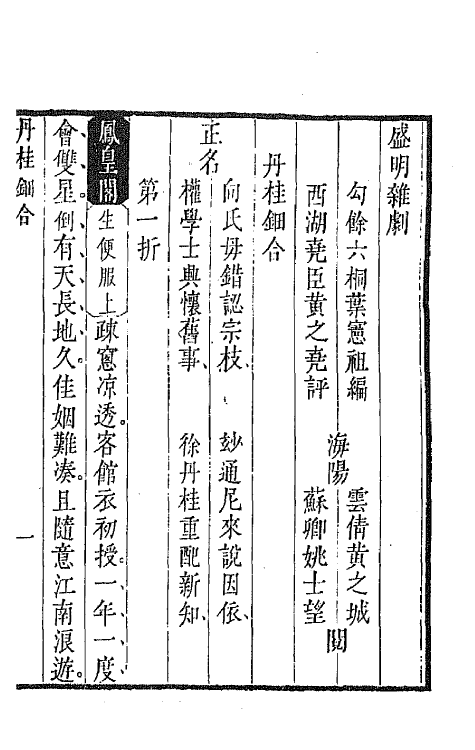 盛明雜劇
勾餘六桐葉憲祖編
西湖堯臣黃之堯評
海陽
雲倩黃之城
蘇卿姚士望
閱
丹桂鈿合
正名
向氏毋錯認宗枝、 玅通尼來說因依、
權學士興懷舊事、 徐丹桂重配新知、
第一折
鳳皇閣 生便服上 疎窻凉透。客館衣初授、一年一度、
會雙星、倒有天長地久佳姻難凑。且隨意江南浪遊。
丹桂鈿合
一